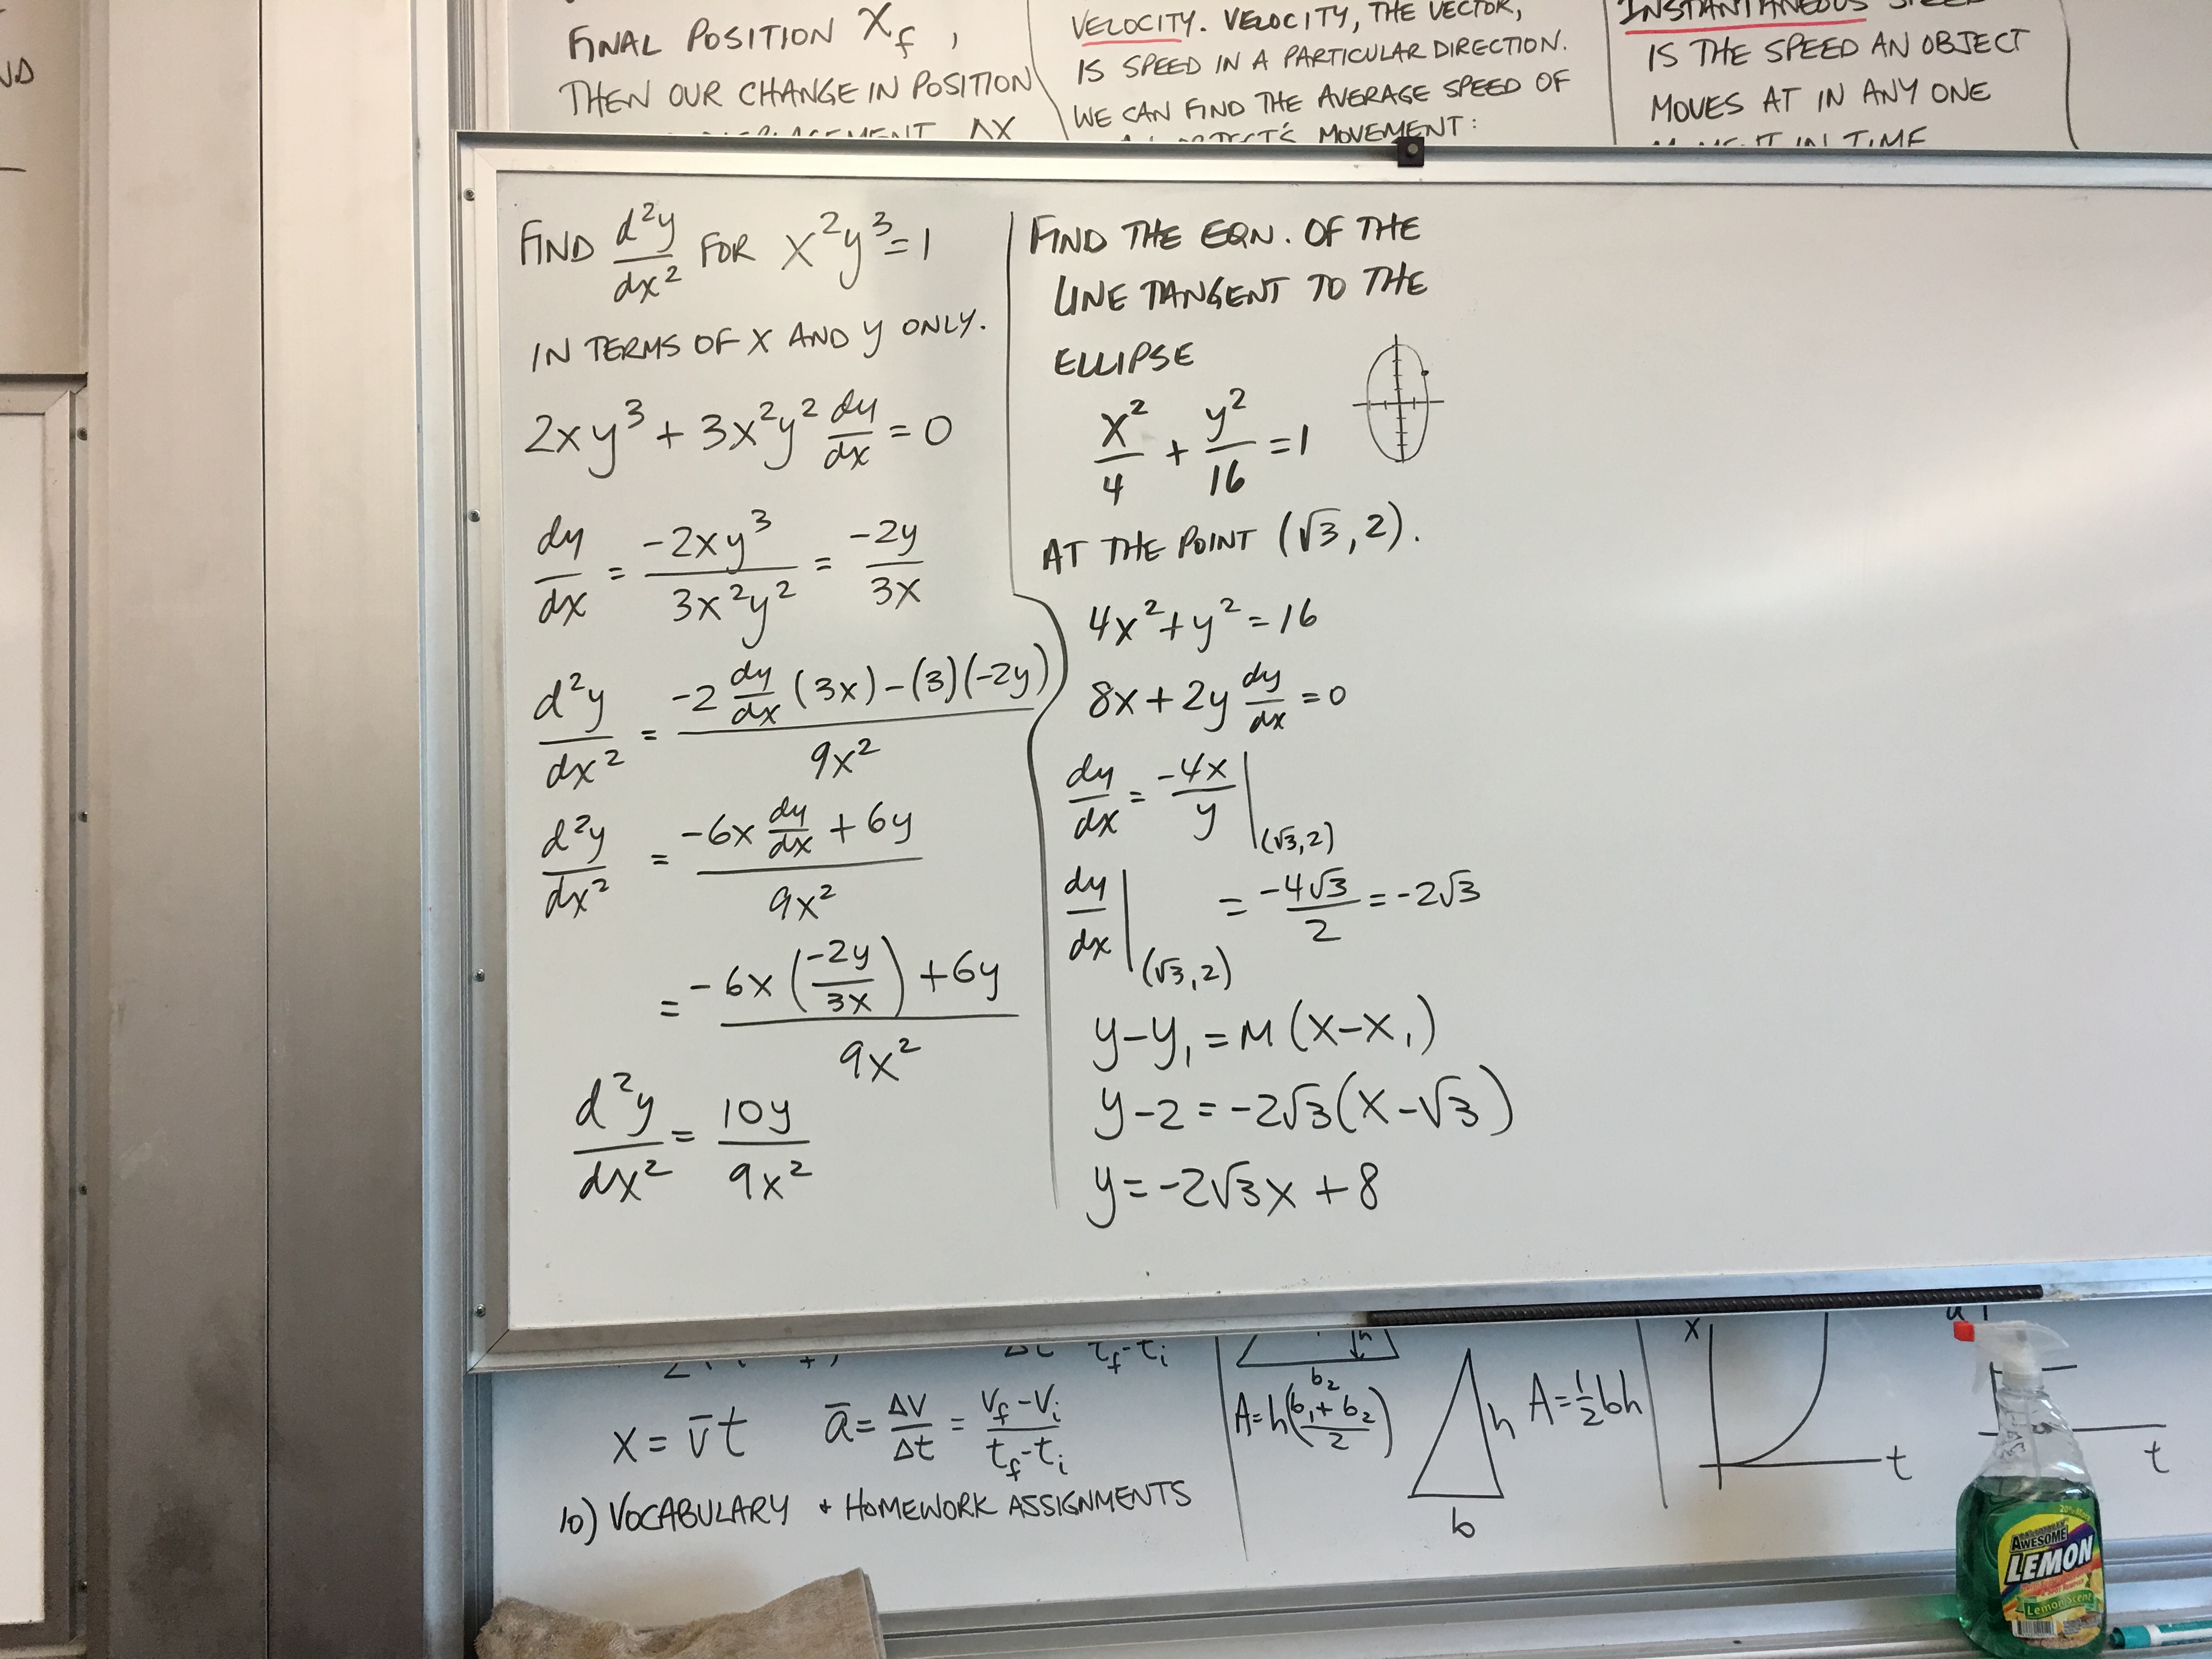 ND
FINAL POSITION Xf ,
THEN OUR CHANGE IN POSITION
ΔX
VELOCITY. VELOCITY, THE VECTOR,
IS SPEED IN A PARTICULAR DIRECTION.
WE CAN FIND THE AVERAGE SPEED OF
MOVEMENT:
INSTANTANEOUS SPEED
IS THE SPEED AN OBJECT
MOVES AT IN ANY ONE
MOMENT IN TIME
FIND d²y/dx² FOR x²y³=1
IN TERMS OF X AND y ONLY.
2xy³ + 3x²y² dy/dx = 0
dy/dx = -2xy³/3x²y² = -2y/3x
d²y/dx² = -2 dy/dx (3x) - (3)(-2y)/9x²
d²y/dx² = -6x dy/dx + 6y/9x²
= -6x (-2y/3x) + 6y/9x²
d²y/dx² = 10y/9x²
FIND THE EQN. OF THE
LINE TANGENT TO THE
ELLIPSE
x²/4 + y²/16 = 1
AT THE POINT (√3, 2).
4x² + y² = 16
8x + 2y dy/dx = 0
dy/dx = -4x/y |(√3,2)
dy/dx |(√3,2) = -4√3/2 = -2√3
y-y₁ = M(x-x₁)
y-2 = -2√3(x-√3)
y = -2√3x + 8
tf-ti
x = v̄t ā = Δv/Δt = vf-vi/tf-ti
10) VOCABULARY + HOMEWORK ASSIGNMENTS
h
b₂
A=h(b₁+b₂/2)
h
A=½bh
b
x
t
t
20% More
AWESOME
LEMON
Lemon Scent